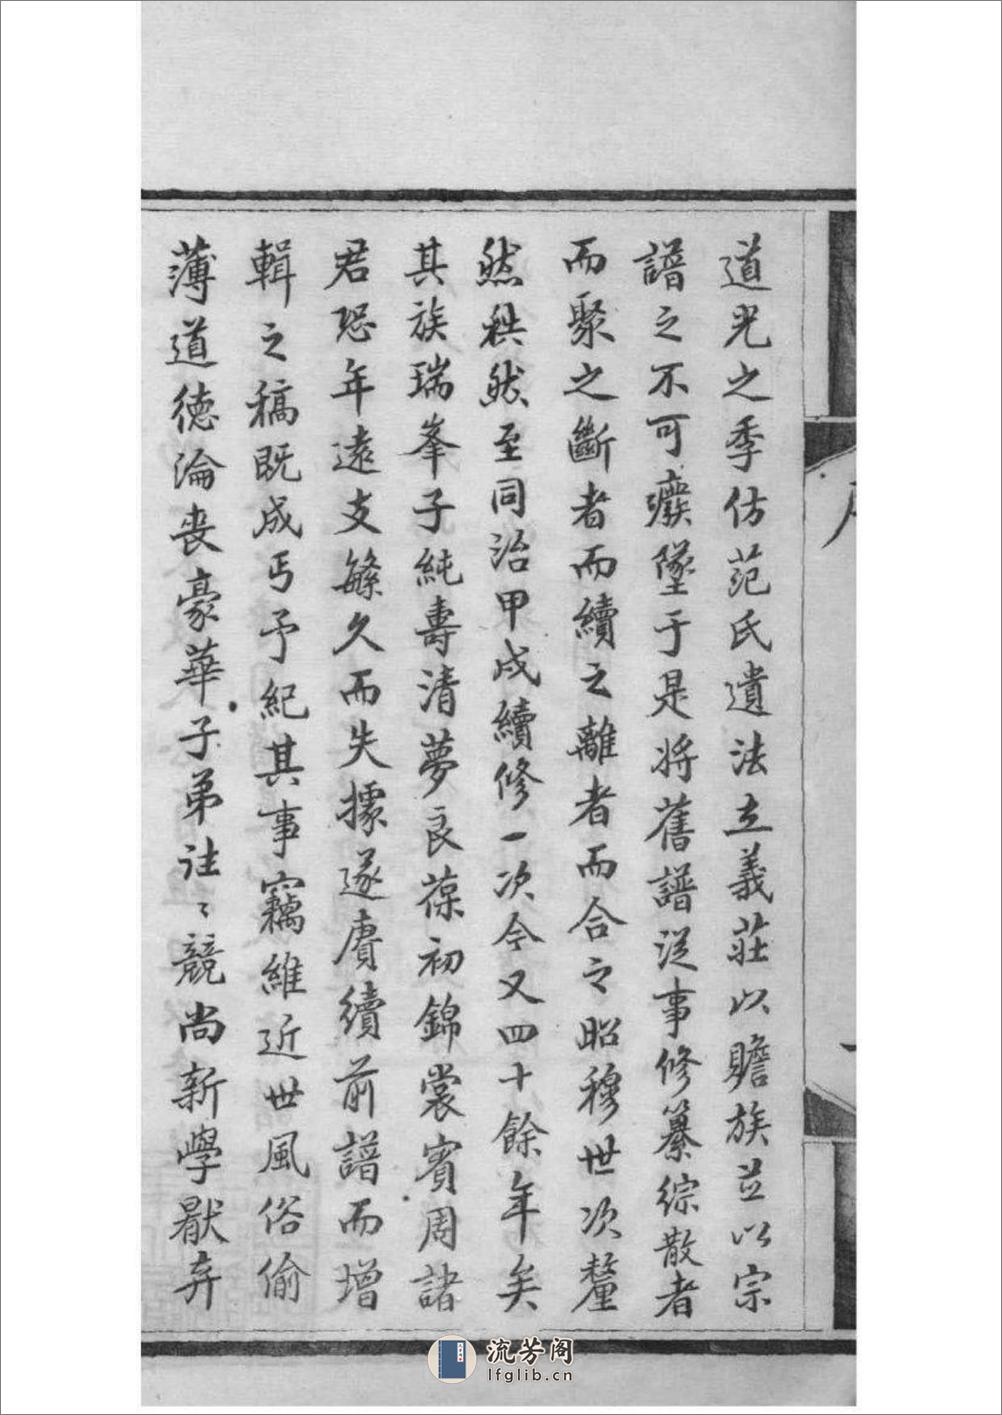 道光之季仿范氏遺法立義莊以贍族並以宗
譜之不可癈墜于是將舊譜從事修纂綜散者
而聚之斷者而續之離者而合之昭穆世次釐
然秩然至同治甲戌續修一次今又四十餘年矣
其族瑞峯子純壽清夢良葆初錦裳賓周諸
君恐年遠支繁久而失據遂賡續前譜而增
輯之稿既成丐予紀其事竊維近世風俗偷
薄道德淪喪豪華子弟往〻競尚新學厭弃
流芳阁
lfglib.cn